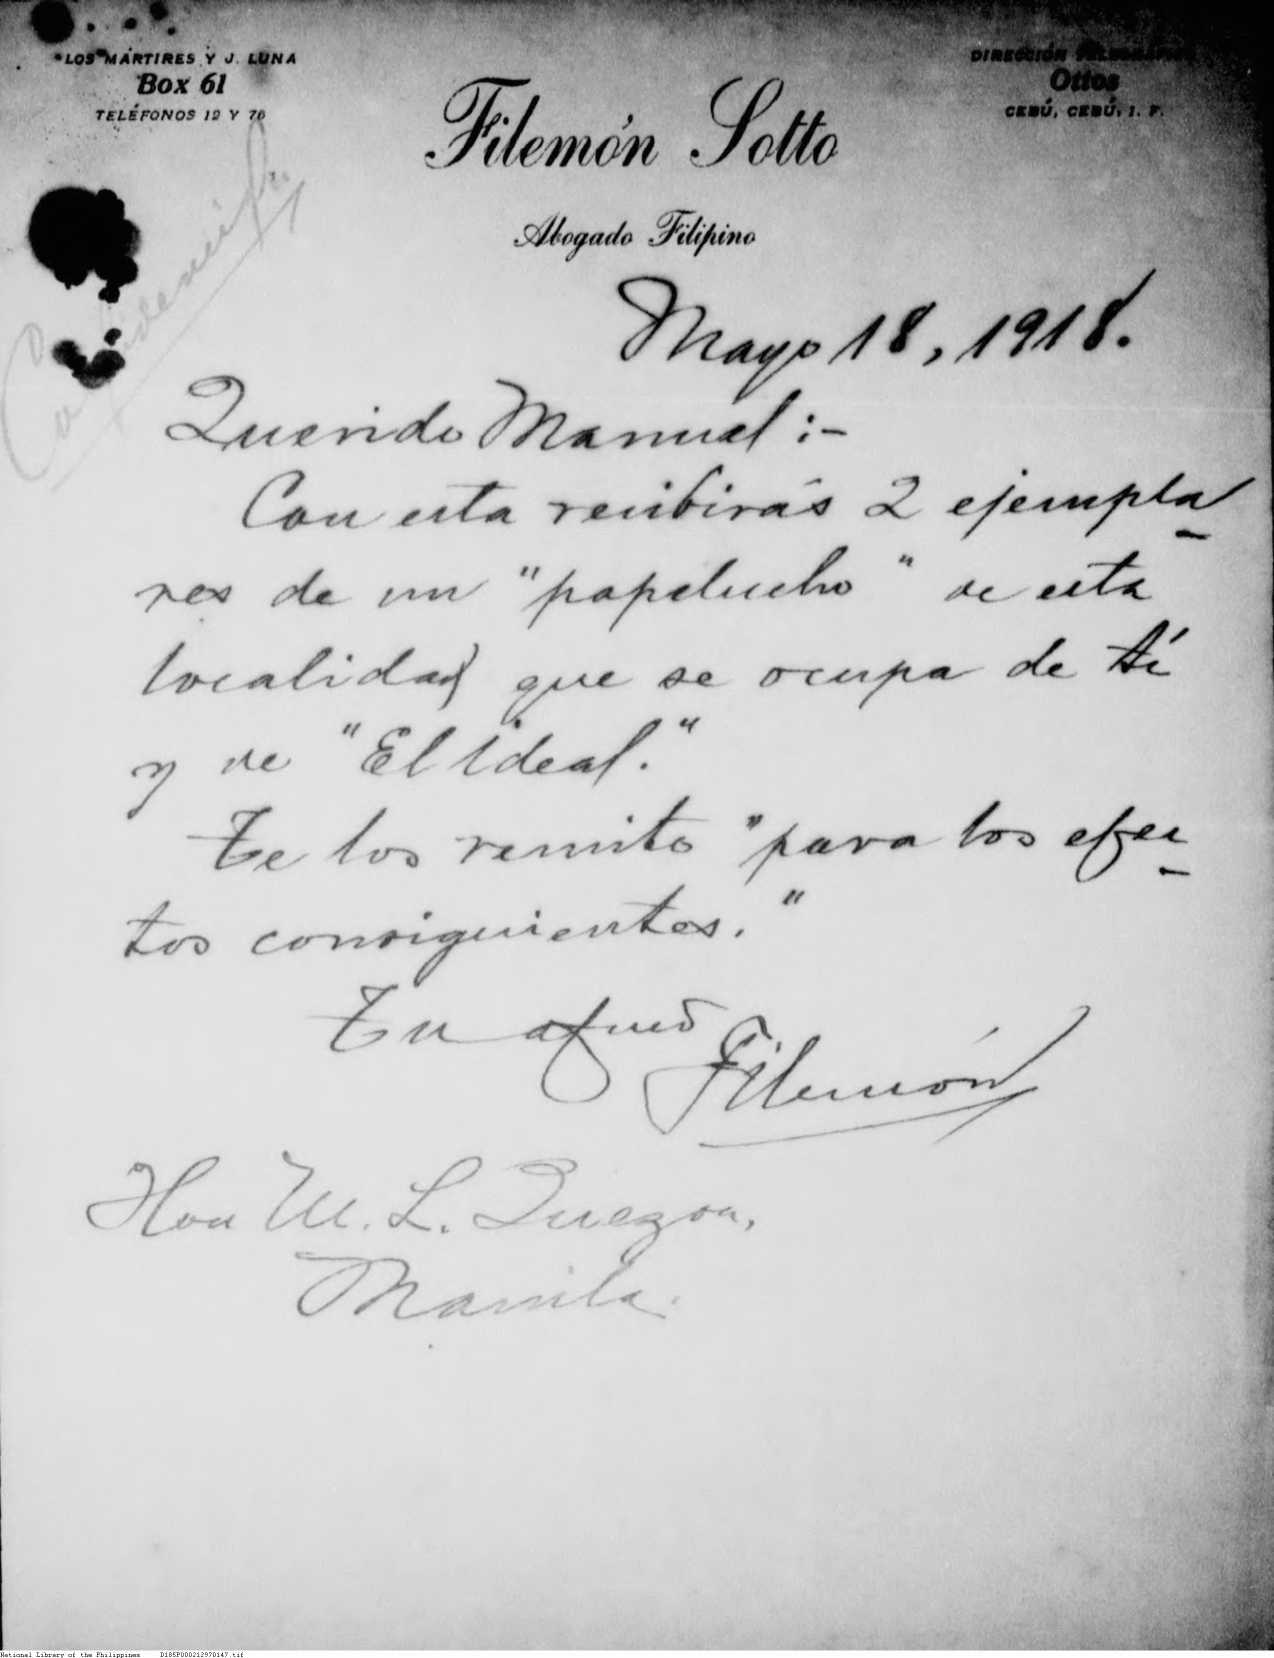 LOS MÁRTIRES Y J. LUNA
Box 61
TELÉFONOS 12 Y 76
DIRECCIÓN
Ottos
CEBÚ, CEBÚ, I. F.
Filemón Sotto
Abogado Filipino
Mayo 18, 1918.
Querido Manuel :-
Con esta recibirás 2 ejempla-
res de un "papelucho" de esta
localidad que se ocupa de tí
y de "El Ideal."
Te los remito "para los efec-
tos consiguientes."
Tu afmo
Filemón
Hon M. L. Quezon,
Manila.
National Library of the Philippines D185P000212970147.tif